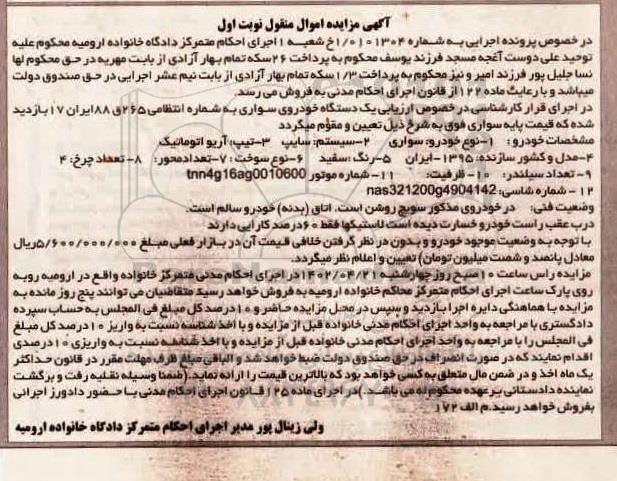 آگهی مزایده اموال منقول نوبت اول
در خصوص پرونده اجرایی به شماره ۱/۰۱۰۱۳۰۴خ شعبه ۱ اجرای احکام متمرکز دادگاه خانواده ارومیه محکوم علیه
توحید علی دوست آغجه مسجد فرزند یوسف محکوم به پرداخت ۲۶سکه تمام بهار آزادی از بابت مهریه در حق محکوم لها
نسا جلیل پور فرزند امیر و نیز محکوم به پرداخت ۱/۳سکه تمام بهار آزادی از بابت نیم عشر اجرایی در حق صندوق دولت
میباشد و با رعایت ماده ۱۲۲ از قانون اجرای احکام مدنی به فروش می رسد.
در اجرای قرار کارشناسی در خصوص ارزیابی یک دستگاه خودروی سواری به شماره انتظامی ۲۶۵ق۸۸ایران ۱۷ بازدید
شده که قیمت پایه سواری فوق به شرح ذیل تعیین و مقوم میگردد
مشخصات خودرو : ۱-نوع خودرو: سواری ۲-سیستم: سایپ ۳-تیپ: آریو اتوماتیک
۴-مدل و کشور سازنده: ۱۳۹۵-ایران ۵-رنگ:سفید ۶-نوع سوخت : ۷-تعدادمحور: ۸-تعداد چرخ: ۴
۹-تعداد سیلندر: ۱۰-ظرفیت: ۱۱-شماره موتور tnn4g16ag0010600
۱۲ - شماره شاسی: nas321200g4904142
وضعیت فنی: در خودروی مذکور سویچ روشن است. اتاق (بدنه) خودرو سالم است.
درب عقب راست خودرو خسارت دیده است لاستیکها فقط ۶۰درصد کارایی دارند
با توجه به وضعیت موجود خودرو و بدون در نظر گرفتن خلافی قیمت آن در بازار فعلی مبلغ ۵/۶۰۰/۰۰۰/۰۰۰ریال
معادل پانصد و شصت میلیون تومان) تعیین و اعلام نظر میگردد.
مزایده راس ساعت ۱۰صبح روز چهارشنبه ۱۴۰۲/۰۴/۲۱در اجرای احکام مدنی متمرکز خانواده واقع در ارومیه روبه
روی پارک ساعت اجرای احکام متمرکز محاکم خانواده ارومیه به فروش خواهد رسید متقاضیان می توانند پنج روز مانده به
مزایده با هماهنگی دایره اجرا بازدید و سپس در محل مزایده حاضر و ۱۰درصد کل مبلغ فی المجلس به حساب سپرده
دادگستری با مراجعه به واحد اجرای احکام مدنی خانواده قبل از مزایده و با اخذ شناسه نسبت به واریز ۱۰درصد کل مبلغ
فی المجلس را با مراجعه به واحد اجرای احکام مدنی خانواده قبل از مزایده و با اخذ شناسه نسبت به واریزی ۱۰درصدی
اقدام نمایند که در صورت انصراف در حق صندوق دولت ضبط خواهد شد و الباقی مبلغ ظرف مهلت مقرر در قانون حداکثر
یک ماه اخذ و در ضمن مال متعلق به کسی خواهد بود که بالاترین قیمت را ارائه نماید. (ضمنا وسیله نقلیه رفت و برگشت
نماینده دادستانی بر عهده محکوم له می باشد.) در اجرای ماده ۱۲۵ قانون اجرای احکام مدنی با حضور دادورز اجرائی
بفروش خواهد رسید.م الف ۱۷۲
ولی زینال پور مدیر اجرای احکام متمرکز دادگاه خانواده ارومیه